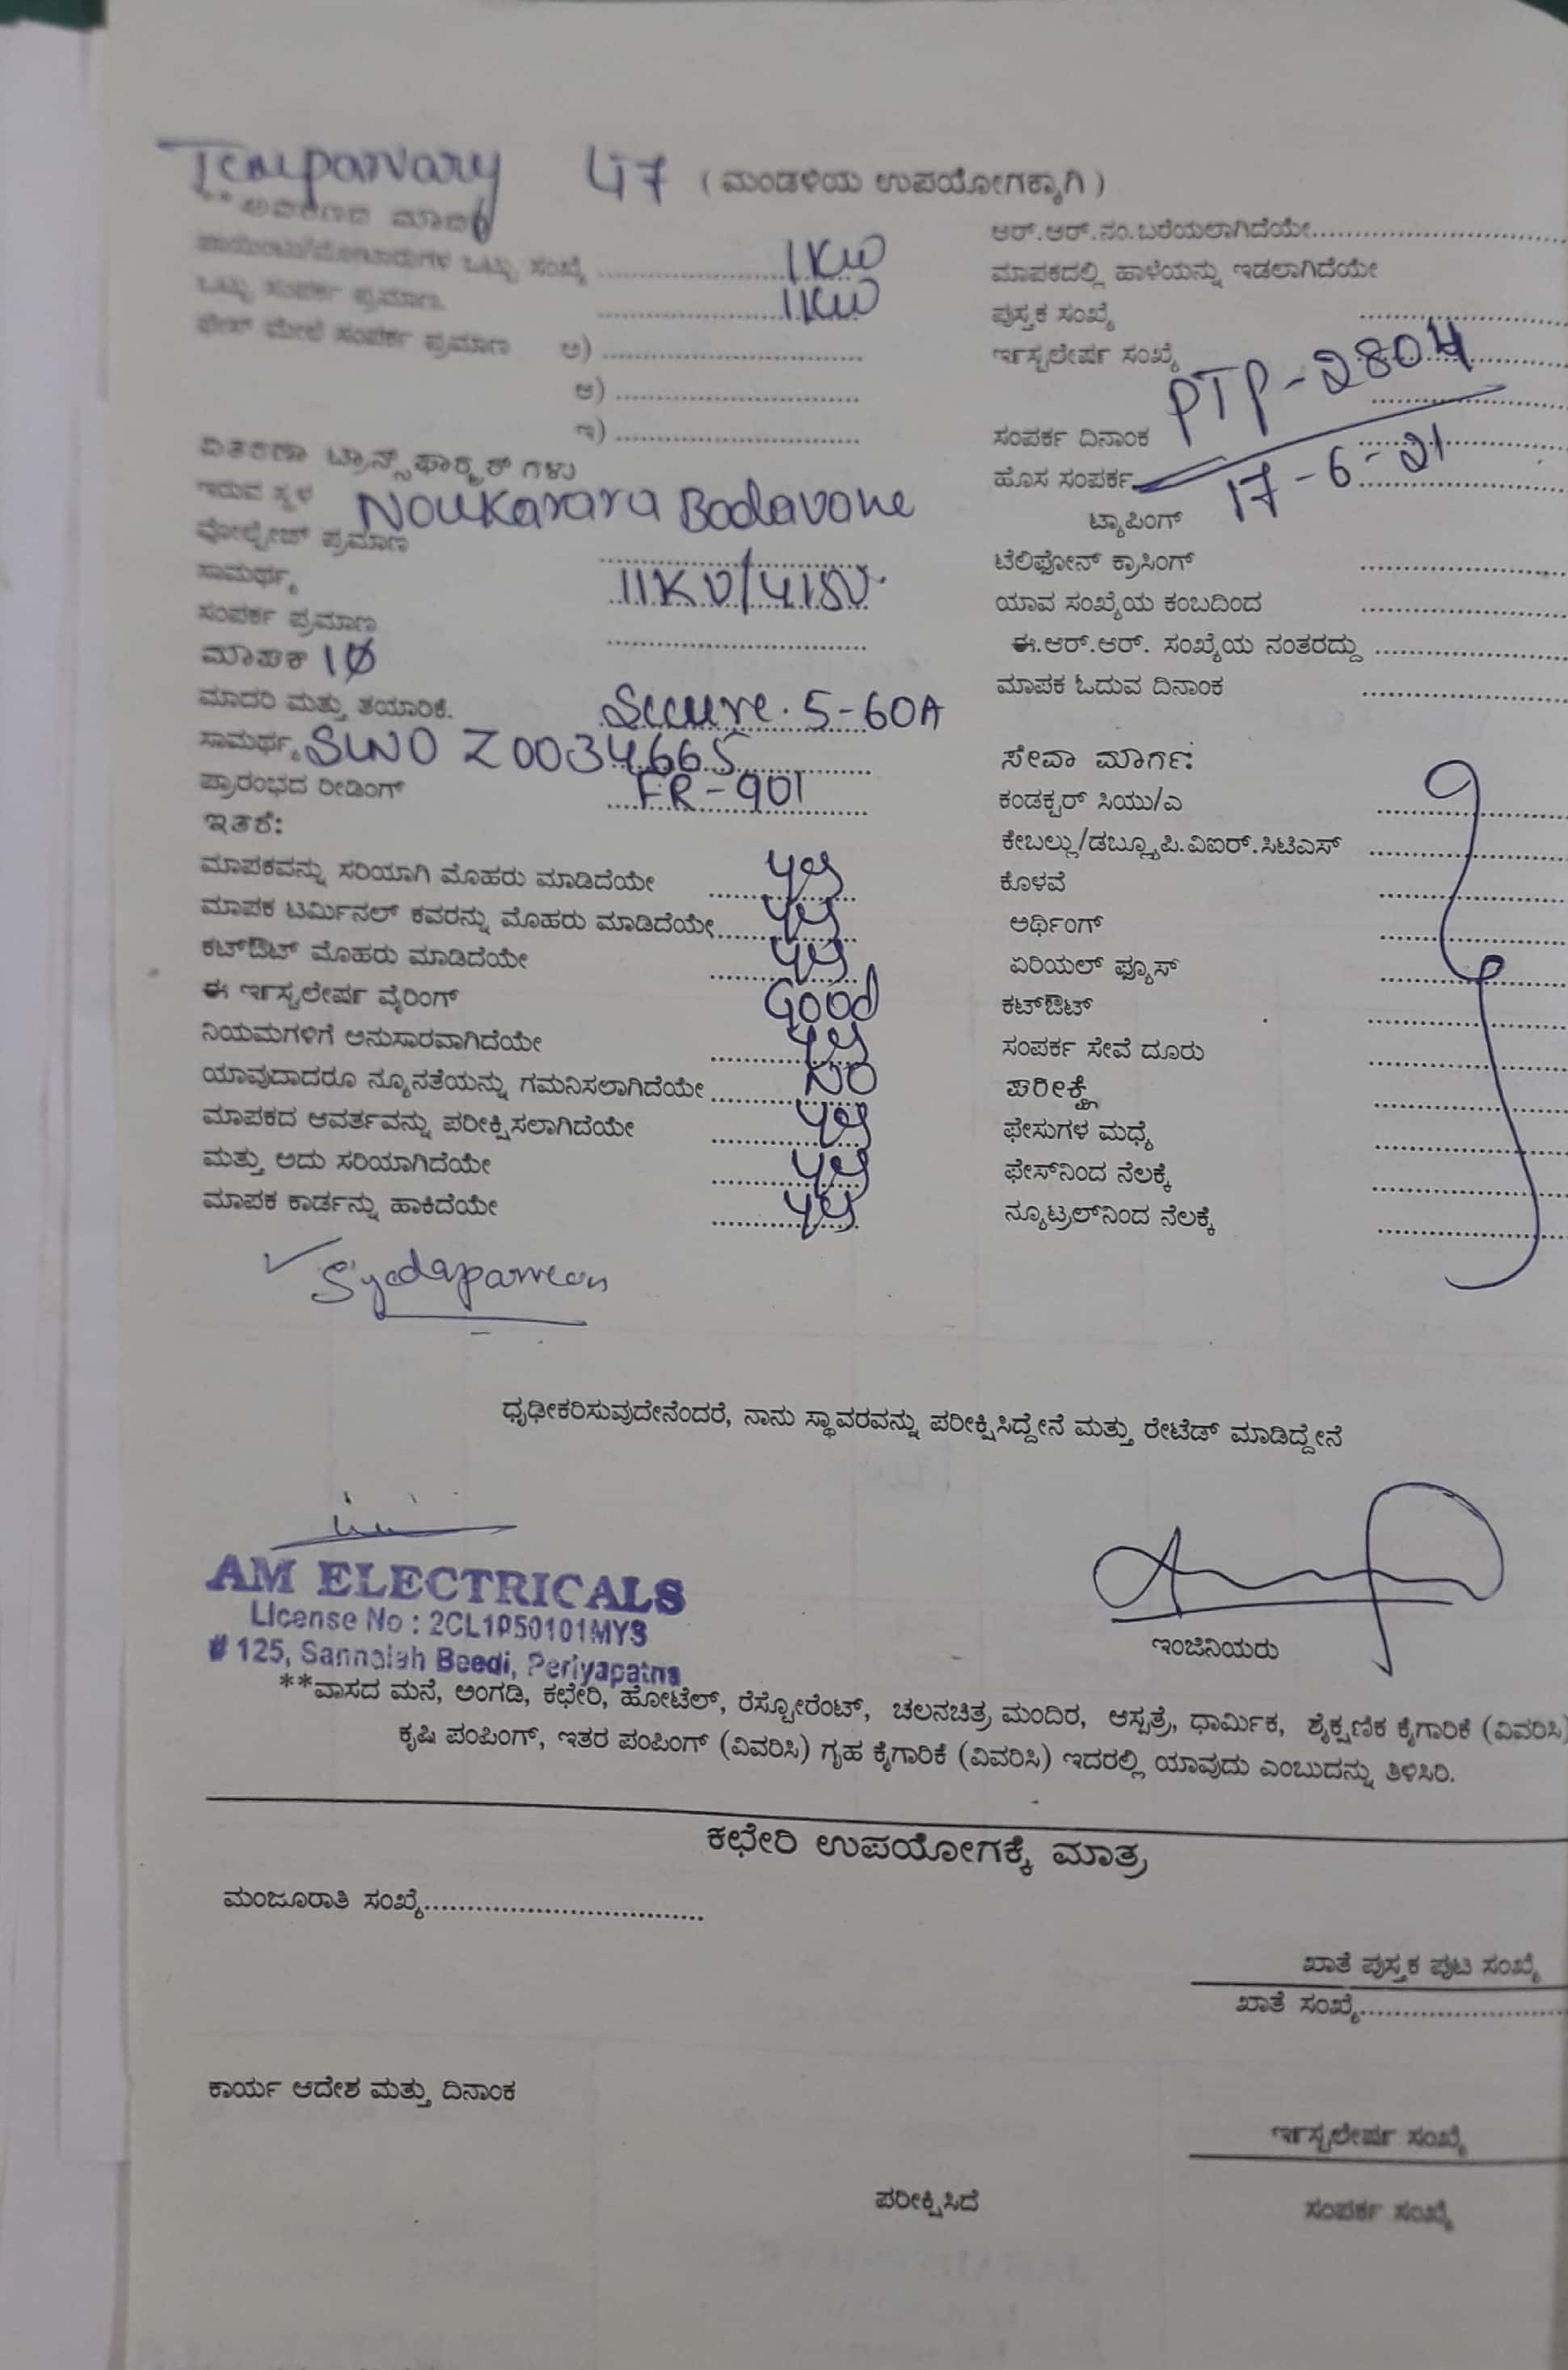 Temparvary 47 (ಮಂಡಳಿಯ ಉಪಯೋಗಕ್ಕಾಗಿ)
ಮಾದರಿ
ಪಾಯಿಂಟು/ಮೋಟಾರುಗಳ ಒಟ್ಟು ಸಂಖ್ಯೆ ........ 1KW
ಒಟ್ಟು ಸಂಪರ್ಕ ಪ್ರಮಾಣ. ........ 1KW
ಫೇಸ್ ಮೇಲೆ ಸಂಪರ್ಕ ಪ್ರಮಾಣ ಅ) ........
ಆ) ........
ಇ) ........
ವಿತರಣಾ ಟ್ರಾನ್ಸ್‌ಫಾರ್ಮರ್ ಗಳು
ಇರುವ ಸ್ಥಳ Noukarara Badavane
ವೋಲ್ಟೇಜ್ ಪ್ರಮಾಣ ........
ಸಾಮರ್ಥ್ಯ 11KV/415V
ಸಂಪರ್ಕ ಪ್ರಮಾಣ ........
ಮಾಪಕ 1Ø
ಮಾದರಿ ಮತ್ತು ತಯಾರಿಕೆ. Secure. 5-60A
ಸಾಮರ್ಥ್ಯ SLNO Z0034665
ಪ್ರಾರಂಭದ ರೀಡಿಂಗ್ FR-901
ಇತರೆ:
ಮಾಪಕವನ್ನು ಸರಿಯಾಗಿ ಮೊಹರು ಮಾಡಿದೆಯೇ ........ yes
ಮಾಪಕ ಟರ್ಮಿನಲ್ ಕವರನ್ನು ಮೊಹರು ಮಾಡಿದೆಯೇ ........ yes
ಕಟ್‌ಔಟ್ ಮೊಹರು ಮಾಡಿದೆಯೇ ........ yes
ಈ ಇನ್‌ಸ್ಟಲೇಷನ್ ವೈರಿಂಗ್ Good
ನಿಯಮಗಳಿಗೆ ಅನುಸಾರವಾಗಿದೆಯೇ ........ yes
ಯಾವುದಾದರೂ ನ್ಯೂನತೆಯನ್ನು ಗಮನಿಸಲಾಗಿದೆಯೇ ........ NO
ಮಾಪಕದ ಆವರ್ತವನ್ನು ಪರೀಕ್ಷಿಸಲಾಗಿದೆಯೇ ........ yes
ಮತ್ತು ಅದು ಸರಿಯಾಗಿದೆಯೇ ........ yes
ಮಾಪಕ ಕಾರ್ಡನ್ನು ಹಾಕಿದೆಯೇ ........ yes
ಆರ್.ಆರ್.ನಂ.ಬರೆಯಲಾಗಿದೆಯೇ........
ಮಾಪಕದಲ್ಲಿ ಹಾಳೆಯನ್ನು ಇಡಲಾಗಿದೆಯೇ
ಪುಸ್ತಕ ಸಂಖ್ಯೆ ........
ಇನ್‌ಸ್ಟಲೇಷನ್ ಸಂಖ್ಯೆ PTP-2804
ಸಂಪರ್ಕ ದಿನಾಂಕ ........
ಹೊಸ ಸಂಪರ್ಕ 17-6-21
ಟ್ಯಾಪಿಂಗ್
ಟೆಲಿಫೋನ್ ಕ್ರಾಸಿಂಗ್ ........
ಯಾವ ಸಂಖ್ಯೆಯ ಕಂಬದಿಂದ ........
ಈ.ಆರ್.ಆರ್. ಸಂಖ್ಯೆಯ ನಂತರದ್ದು ........
ಮಾಪಕ ಓದುವ ದಿನಾಂಕ ........
ಸೇವಾ ಮಾರ್ಗ:
ಕಂಡಕ್ಟರ್ ಸಿಯು/ಎ ........
ಕೇಬಲ್ಲು/ಡಬ್ಲ್ಯೂಪಿ.ವಿಐಆರ್.ಸಿಟಿಎಸ್ ........
ಕೊಳವೆ ........
ಅರ್ಥಿಂಗ್ ........
ಏರಿಯಲ್ ಫ್ಯೂಸ್ ........
ಕಟ್‌ಔಟ್ ........
ಸಂಪರ್ಕ ಸೇವೆ ದೂರು ........
ಪರೀಕ್ಷೆ ........
ಫೇಸುಗಳ ಮಧ್ಯೆ ........
ಫೇಸ್‌ನಿಂದ ನೆಲಕ್ಕೆ ........
ನ್ಯೂಟ್ರಲ್‌ನಿಂದ ನೆಲಕ್ಕೆ ........
Syedaparveen
ಧೃಢೀಕರಿಸುವುದೇನೆಂದರೆ, ನಾನು ಸ್ಥಾವರವನ್ನು ಪರೀಕ್ಷಿಸಿದ್ದೇನೆ ಮತ್ತು ರೇಟೆಡ್ ಮಾಡಿದ್ದೇನೆ
AM ELECTRICALS
License No : 2CL1P50101MYS
# 125, Sannaiah Beedi, Periyapatna
ಇಂಜಿನಿಯರು
**ವಾಸದ ಮನೆ, ಅಂಗಡಿ, ಕಛೇರಿ, ಹೋಟೆಲ್, ರೆಸ್ಟೋರೆಂಟ್, ಚಲನಚಿತ್ರ ಮಂದಿರ, ಆಸ್ಪತ್ರೆ, ಧಾರ್ಮಿಕ, ಶೈಕ್ಷಣಿಕ ಕೈಗಾರಿಕೆ (ವಿವರಿಸಿ)
ಕೃಷಿ ಪಂಪಿಂಗ್, ಇತರ ಪಂಪಿಂಗ್ (ವಿವರಿಸಿ) ಗೃಹ ಕೈಗಾರಿಕೆ (ವಿವರಿಸಿ) ಇದರಲ್ಲಿ ಯಾವುದು ಎಂಬುದನ್ನು ತಿಳಿಸಿರಿ.
ಕಛೇರಿ ಉಪಯೋಗಕ್ಕೆ ಮಾತ್ರ
ಮಂಜೂರಾತಿ ಸಂಖ್ಯೆ........
ಖಾತೆ ಪುಸ್ತಕ ಪುಟ ಸಂಖ್ಯೆ
ಖಾತೆ ಸಂಖ್ಯೆ........
ಕಾರ್ಯ ಆದೇಶ ಮತ್ತು ದಿನಾಂಕ
ಇನ್‌ಸ್ಟಲೇಷನ್ ಸಂಖ್ಯೆ
ಪರೀಕ್ಷಿಸಿದೆ
ಸಂಪರ್ಕ ಸಂಖ್ಯೆ